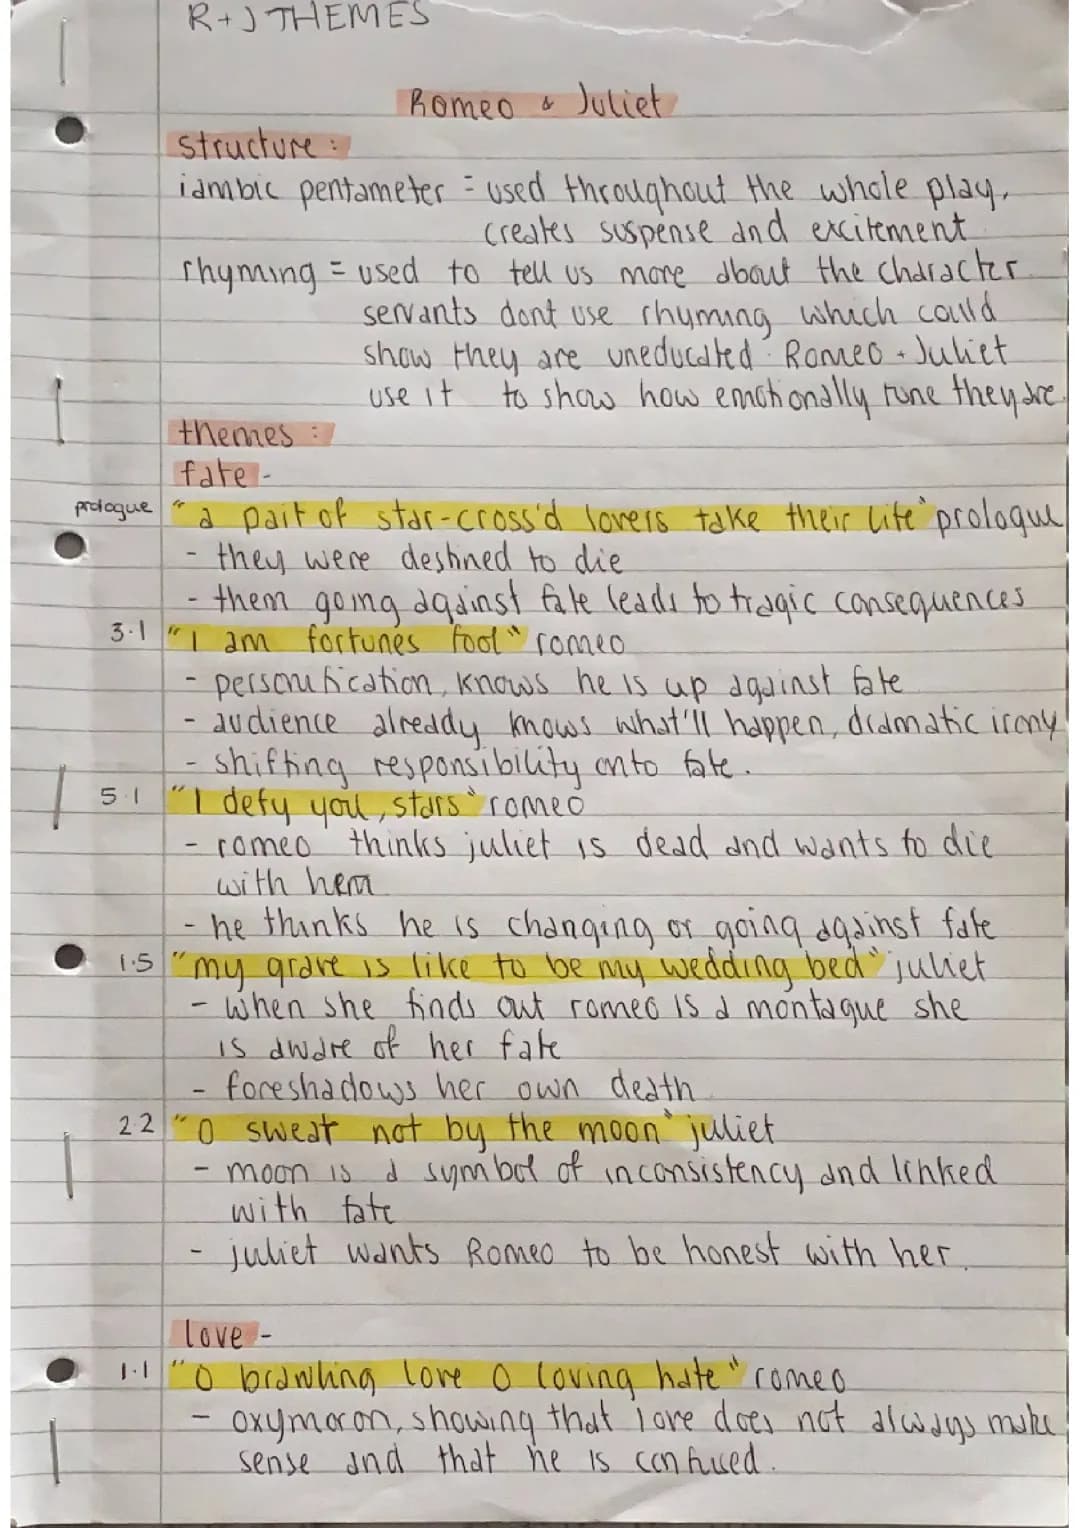 R+J THEMES
Romeo & Juliet
structure:
iambic pentameter = used throughout the whole play,
creates suspense and excitement
rhyming = used to tell us more about the character
servants dont use rhyming which could
show they are uneducated. Romeo + Juliet
use it to show how emotionally tune they are.
themes:
fate -
prologue "a pair of star-cross'd lovers take their life" prologue
- they were destined to die
- them going against fate leads to tragic consequences
3.1 "I am fortunes fool" romeo
- personification, knows he is up against fate
- audience already knows what'll happen, dramatic irony
- shifting responsibility onto fate.
5.1 "I defy you, stars" romeo
- romeo thinks juliet is dead and wants to die
with her
- he thinks he is changing or going against fate
1.5 "my grave is like to be my wedding bed" juliet
- when she finds out romeo is a montague she
is aware of her fate
- foreshadows her own death
2.2 "O swear not by the moon" juliet
- moon is a symbol of inconsistency and linked
with fate
- juliet wants Romeo to be honest with her.
love -
1.1 "O brawling love O loving hate" romeo
- oxymoron, showing that love does not always make
sense and that he is confused.